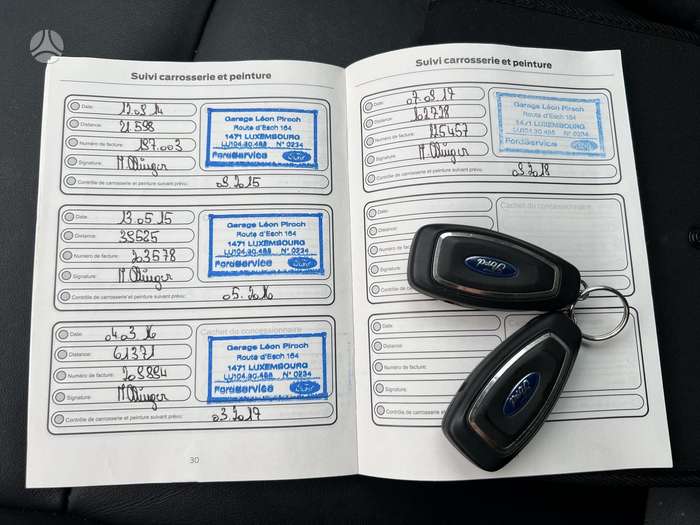 Suivi carrosserie et peinture
Date:
Distance: 21.598
Numéro de facture: 187.003
Signature:
Contrôle de carrosserie et peinture suivant prévu: 09.2015
Garage Léon Pirsch
Route d'Esch 164
1471 LUXEMBOURG
LU104.30.488 N° 0234
FordService Ford
Date: 13.05.15
Distance:
Numéro de facture: 203578
Signature:
Contrôle de carrosserie et peinture suivant prévu: 05.2016
Garage Léon Pirsch
Route d'Esch 164
1471 LUXEMBOURG
LU104.30.488 N° 0234
FordService Ford
Date: 04.03.16
Distance: 61371
Numéro de facture:
Signature:
Contrôle de carrosserie et peinture suivant prévu: 03.2017
Cachet du concessionnaire
Garage Léon Pirsch
Route d'Esch 164
1471 LUXEMBOURG
LU104.30.488 N° 0234
FordService Ford
30
Suivi carrosserie et peinture
Date: 07.09.17
Distance:
Numéro de facture: 225457
Signature:
Contrôle de carrosserie et peinture suivant prévu: 09.2018
Garage Léon Pirsch
Route d'Esch 164
1471 LUXEMBOURG
LU104.30.488 N° 0234
FordService Ford
Date:
Distance:
Numéro de
Signature:
Contrôle
Cachet du concessionnaire
Date:
Distance:
Numéro de facture:
Signature:
Contrôle de carrosserie et peinture suivant prévu:
Ford
Ford